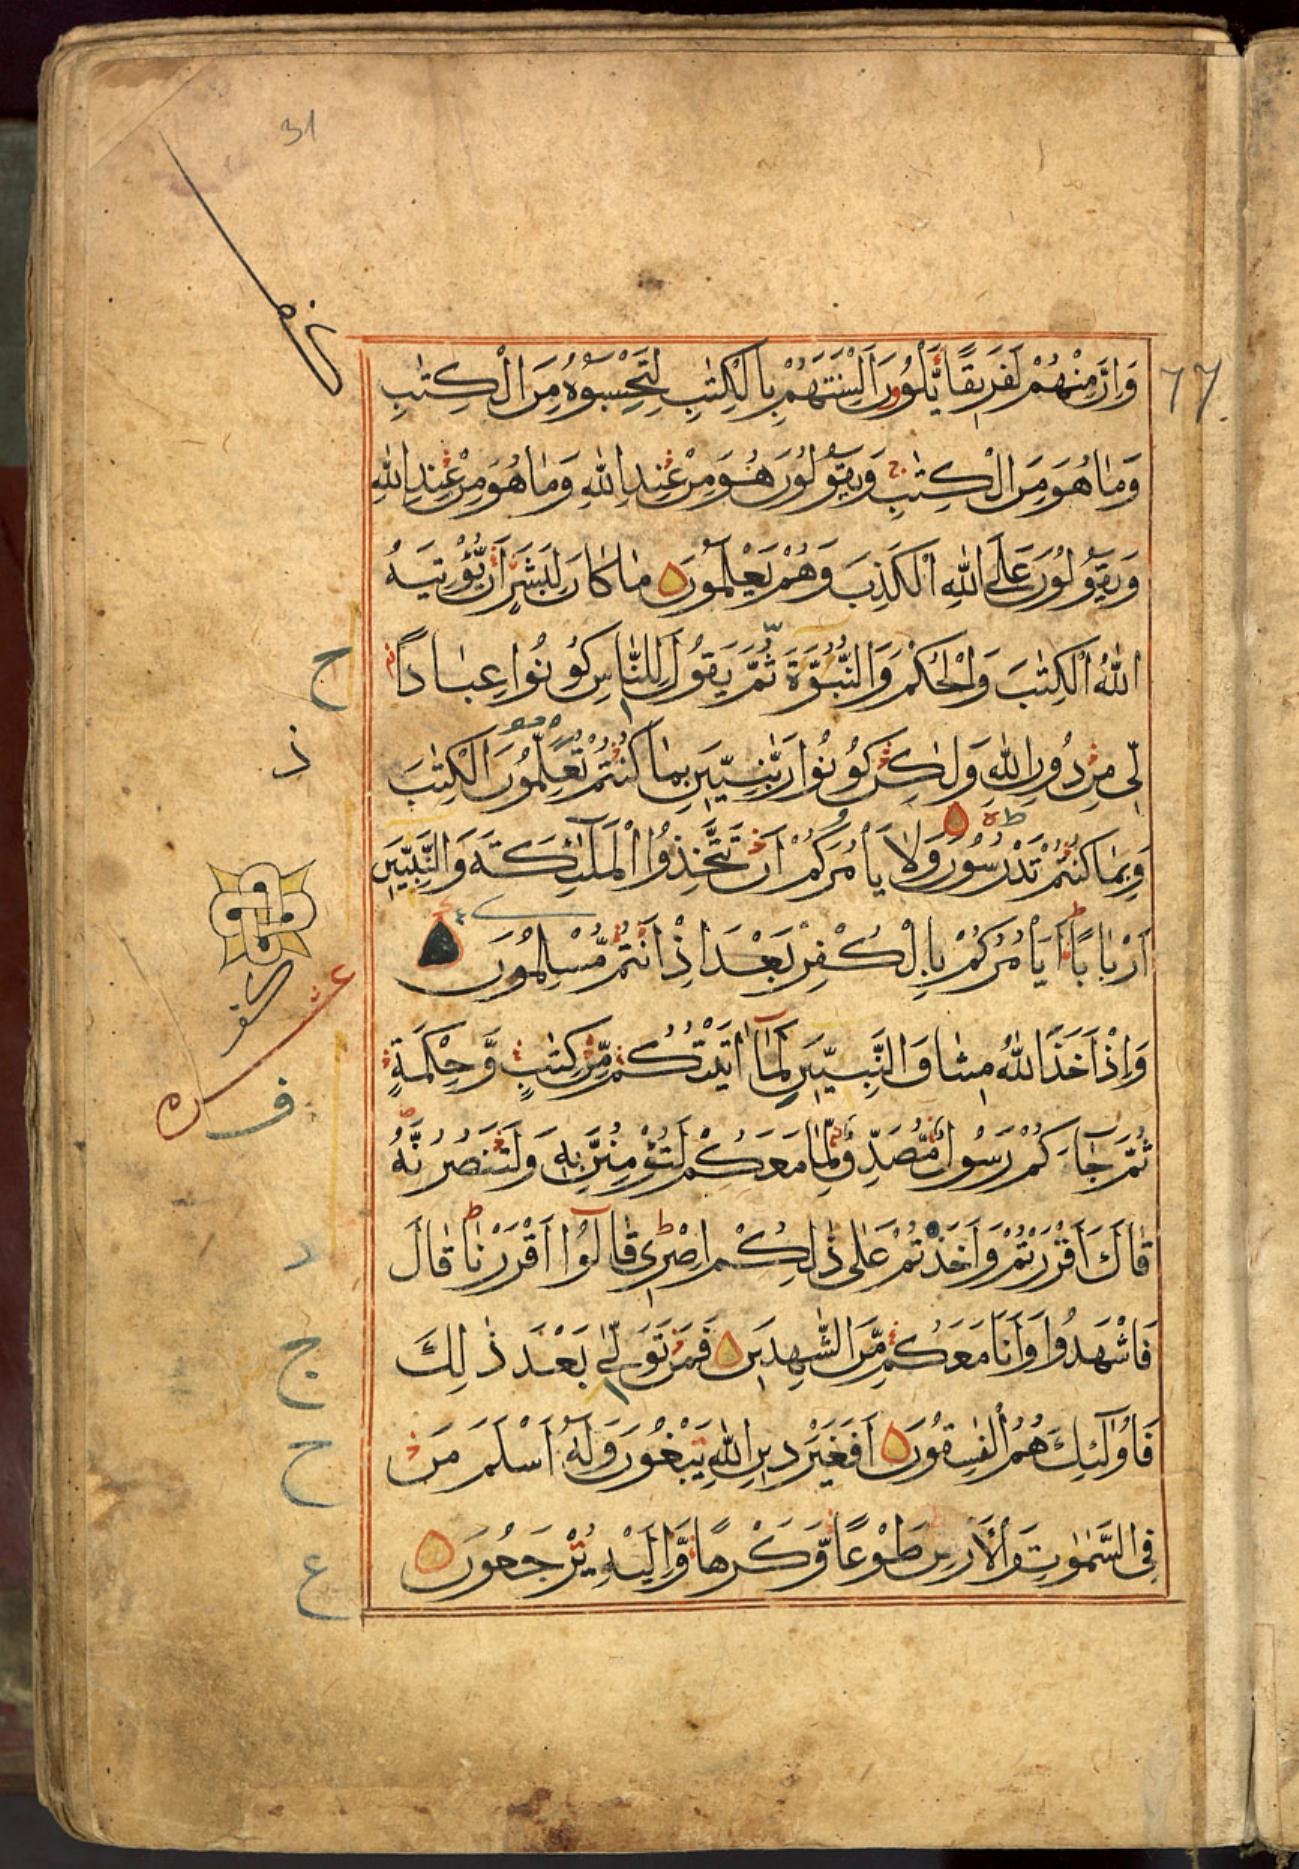 31
وَاِنَّ مِنْهُمْ لَفَرِيقًا يَّلْوُنَ اَلْسِنَتَهُمْ بِالْكِتٰبِ لِتَحْسَبُوْهُ مِنَ الْكِتٰبِ
77
وَمَا هُوَ مِنَ الْكِتٰبِ وَيَقُوْلُوْنَ هُوَ مِنْ عِنْدِ اللّٰهِ وَمَا هُوَ مِنْ عِنْدِ اللّٰهِ
وَيَقُوْلُوْنَ عَلَى اللّٰهِ الْكَذِبَ وَهُمْ يَعْلَمُوْنَ مَا كَانَ لِبَشَرٍ اَنْ يُّؤْتِيَهُ
اللّٰهُ الْكِتٰبَ وَالْحُكْمَ وَالنُّبُوَّةَ ثُمَّ يَقُوْلَ لِلنَّاسِ كُوْنُوْا عِبَادًا
ح
لِّى مِنْ دُوْنِ اللّٰهِ وَلٰكِنْ كُوْنُوْا رَبّٰنِيّٖنَ بِمَا كُنْتُمْ تُعَلِّمُوْنَ الْكِتٰبَ
ذ
وَبِمَا كُنْتُمْ تَدْرُسُوْنَ وَلَا يَأْمُرَكُمْ اَنْ تَتَّخِذُوا الْمَلٰٓئِكَةَ وَالنَّبِيّٖنَ
اَرْبَابًا اَيَأْمُرُكُمْ بِالْكُفْرِ بَعْدَ اِذْ اَنْتُمْ مُّسْلِمُوْنَ
عشره
وَاِذْ اَخَذَ اللّٰهُ مِيثَاقَ النَّبِيّٖنَ لَمَآ اٰتَيْتُكُمْ مِّنْ كِتٰبٍ وَّحِكْمَةٍ
ف
ثُمَّ جَآءَكُمْ رَسُوْلٌ مُّصَدِّقٌ لِّمَا مَعَكُمْ لَتُؤْمِنُنَّ بِهٖ وَلَتَنْصُرُنَّهٗ
قَالَ ءَاَقْرَرْتُمْ وَاَخَذْتُمْ عَلٰى ذٰلِكُمْ اِصْرِى قَالُوْٓا اَقْرَرْنَا قَالَ
د
فَاشْهَدُوْا وَاَنَا مَعَكُمْ مِّنَ الشّٰهِدِيْنَ فَمَنْ تَوَلّٰى بَعْدَ ذٰلِكَ
ج
فَاُولٰٓئِكَ هُمُ الْفٰسِقُوْنَ اَفَغَيْرَ دِيْنِ اللّٰهِ يَبْغُوْنَ وَلَهٗٓ اَسْلَمَ مَنْ
ح
فِى السَّمٰوٰتِ وَالْاَرْضِ طَوْعًا وَّكَرْهًا وَّاِلَيْهِ يُرْجَعُوْنَ
ع